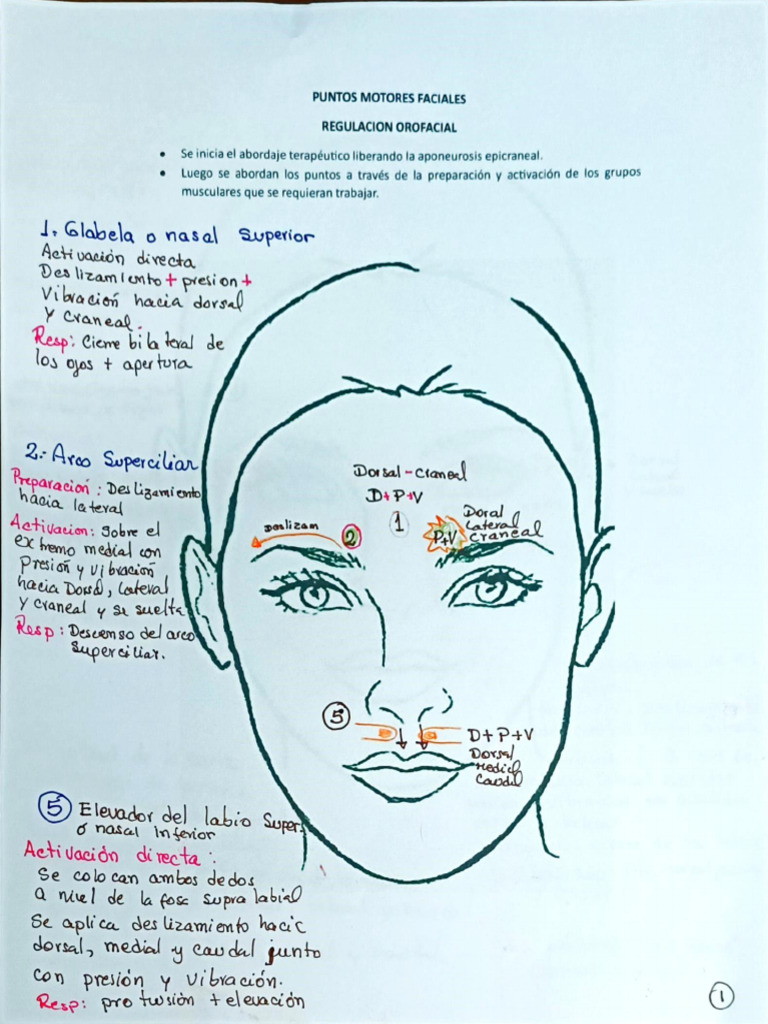 PUNTOS MOTORES FACIALES
REGULACION OROFACIAL
• Se inicia el abordaje terapéutico liberando la aponeurosis epicraneal.
• Luego se abordan los puntos a través de la preparación y activación de los grupos
musculares que se requieran trabajar.
1. Glabela o nasal Superior
Activación directa
Deslizamiento + presion +
Vibración hacia dorsal
y craneal.
Resp: Cierre bilateral de
los ojos + apertura
2.- Arco Superciliar
Preparación: Deslizamiento
hacia lateral
Activacion: Sobre el
extremo medial con
Presión y vibración
hacia Dorsal, lateral
y craneal y se suelta
Resp: Descenso del arco
Superciliar.
Dorsal-craneal
D+P+V
1
Deslizam
2
P+V
Doral
Lateral
craneal
5
D+P+V
Dorsal
Medial
Caudal
5 Elevador del labio Super.
o nasal inferior
Activación directa:
Se colocan ambos dedos
a nivel de la fosa supra labial
Se aplica deslizamiento hacia
dorsal, medial y caudal junto
con presión y vibración.
Resp: protusión + elevación
1